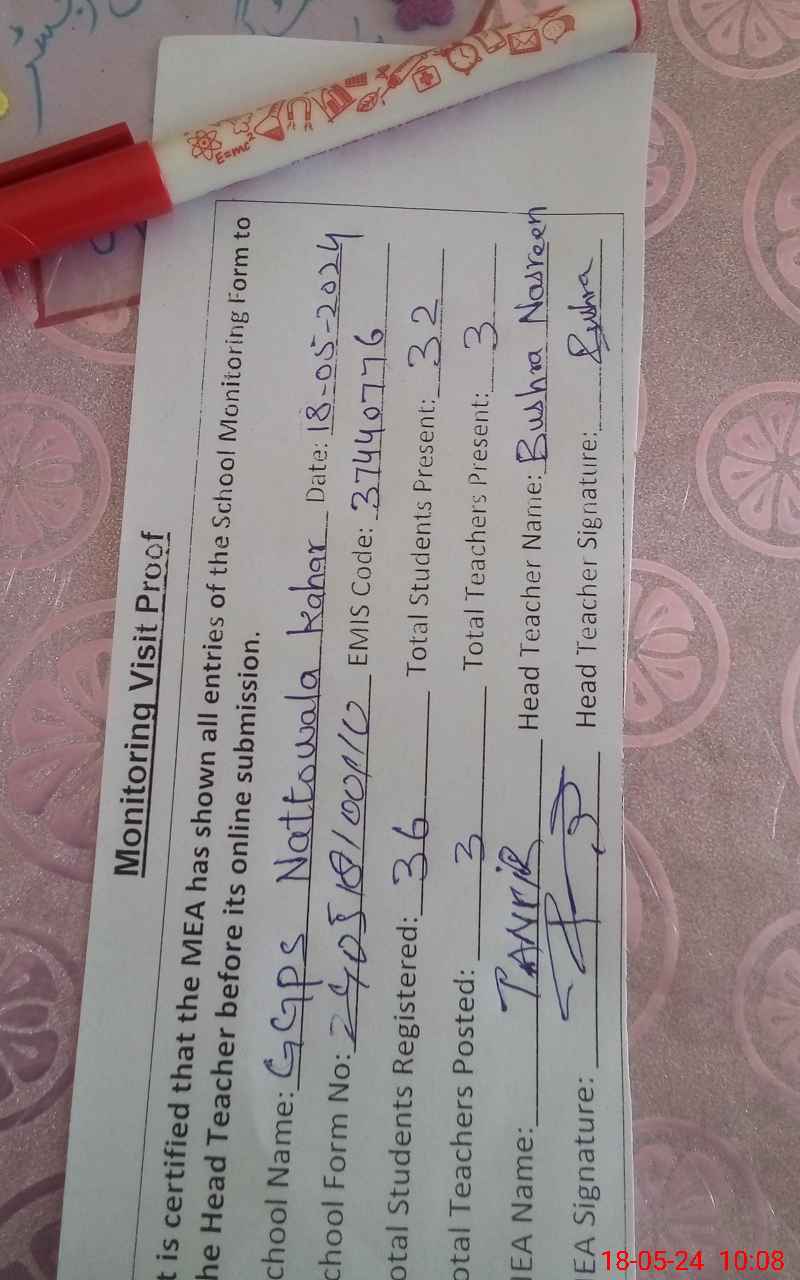 Monitoring Visit Proof
t is certified that the MEA has shown all entries of the School Monitoring Form to
he Head Teacher before its online submission.
chool Name: GGPS Nattowala kahar Date: 18-05-2024
chool Form No: EMIS Code: 37440776
otal Students Registered: 36 Total Students Present: 32
otal Teachers Posted: 3 Total Teachers Present: 3
MEA Name: Head Teacher Name: Bushra Nasreen
MEA Signature: Head Teacher Signature: Bushra
E=mc²
18-05-24 10:08